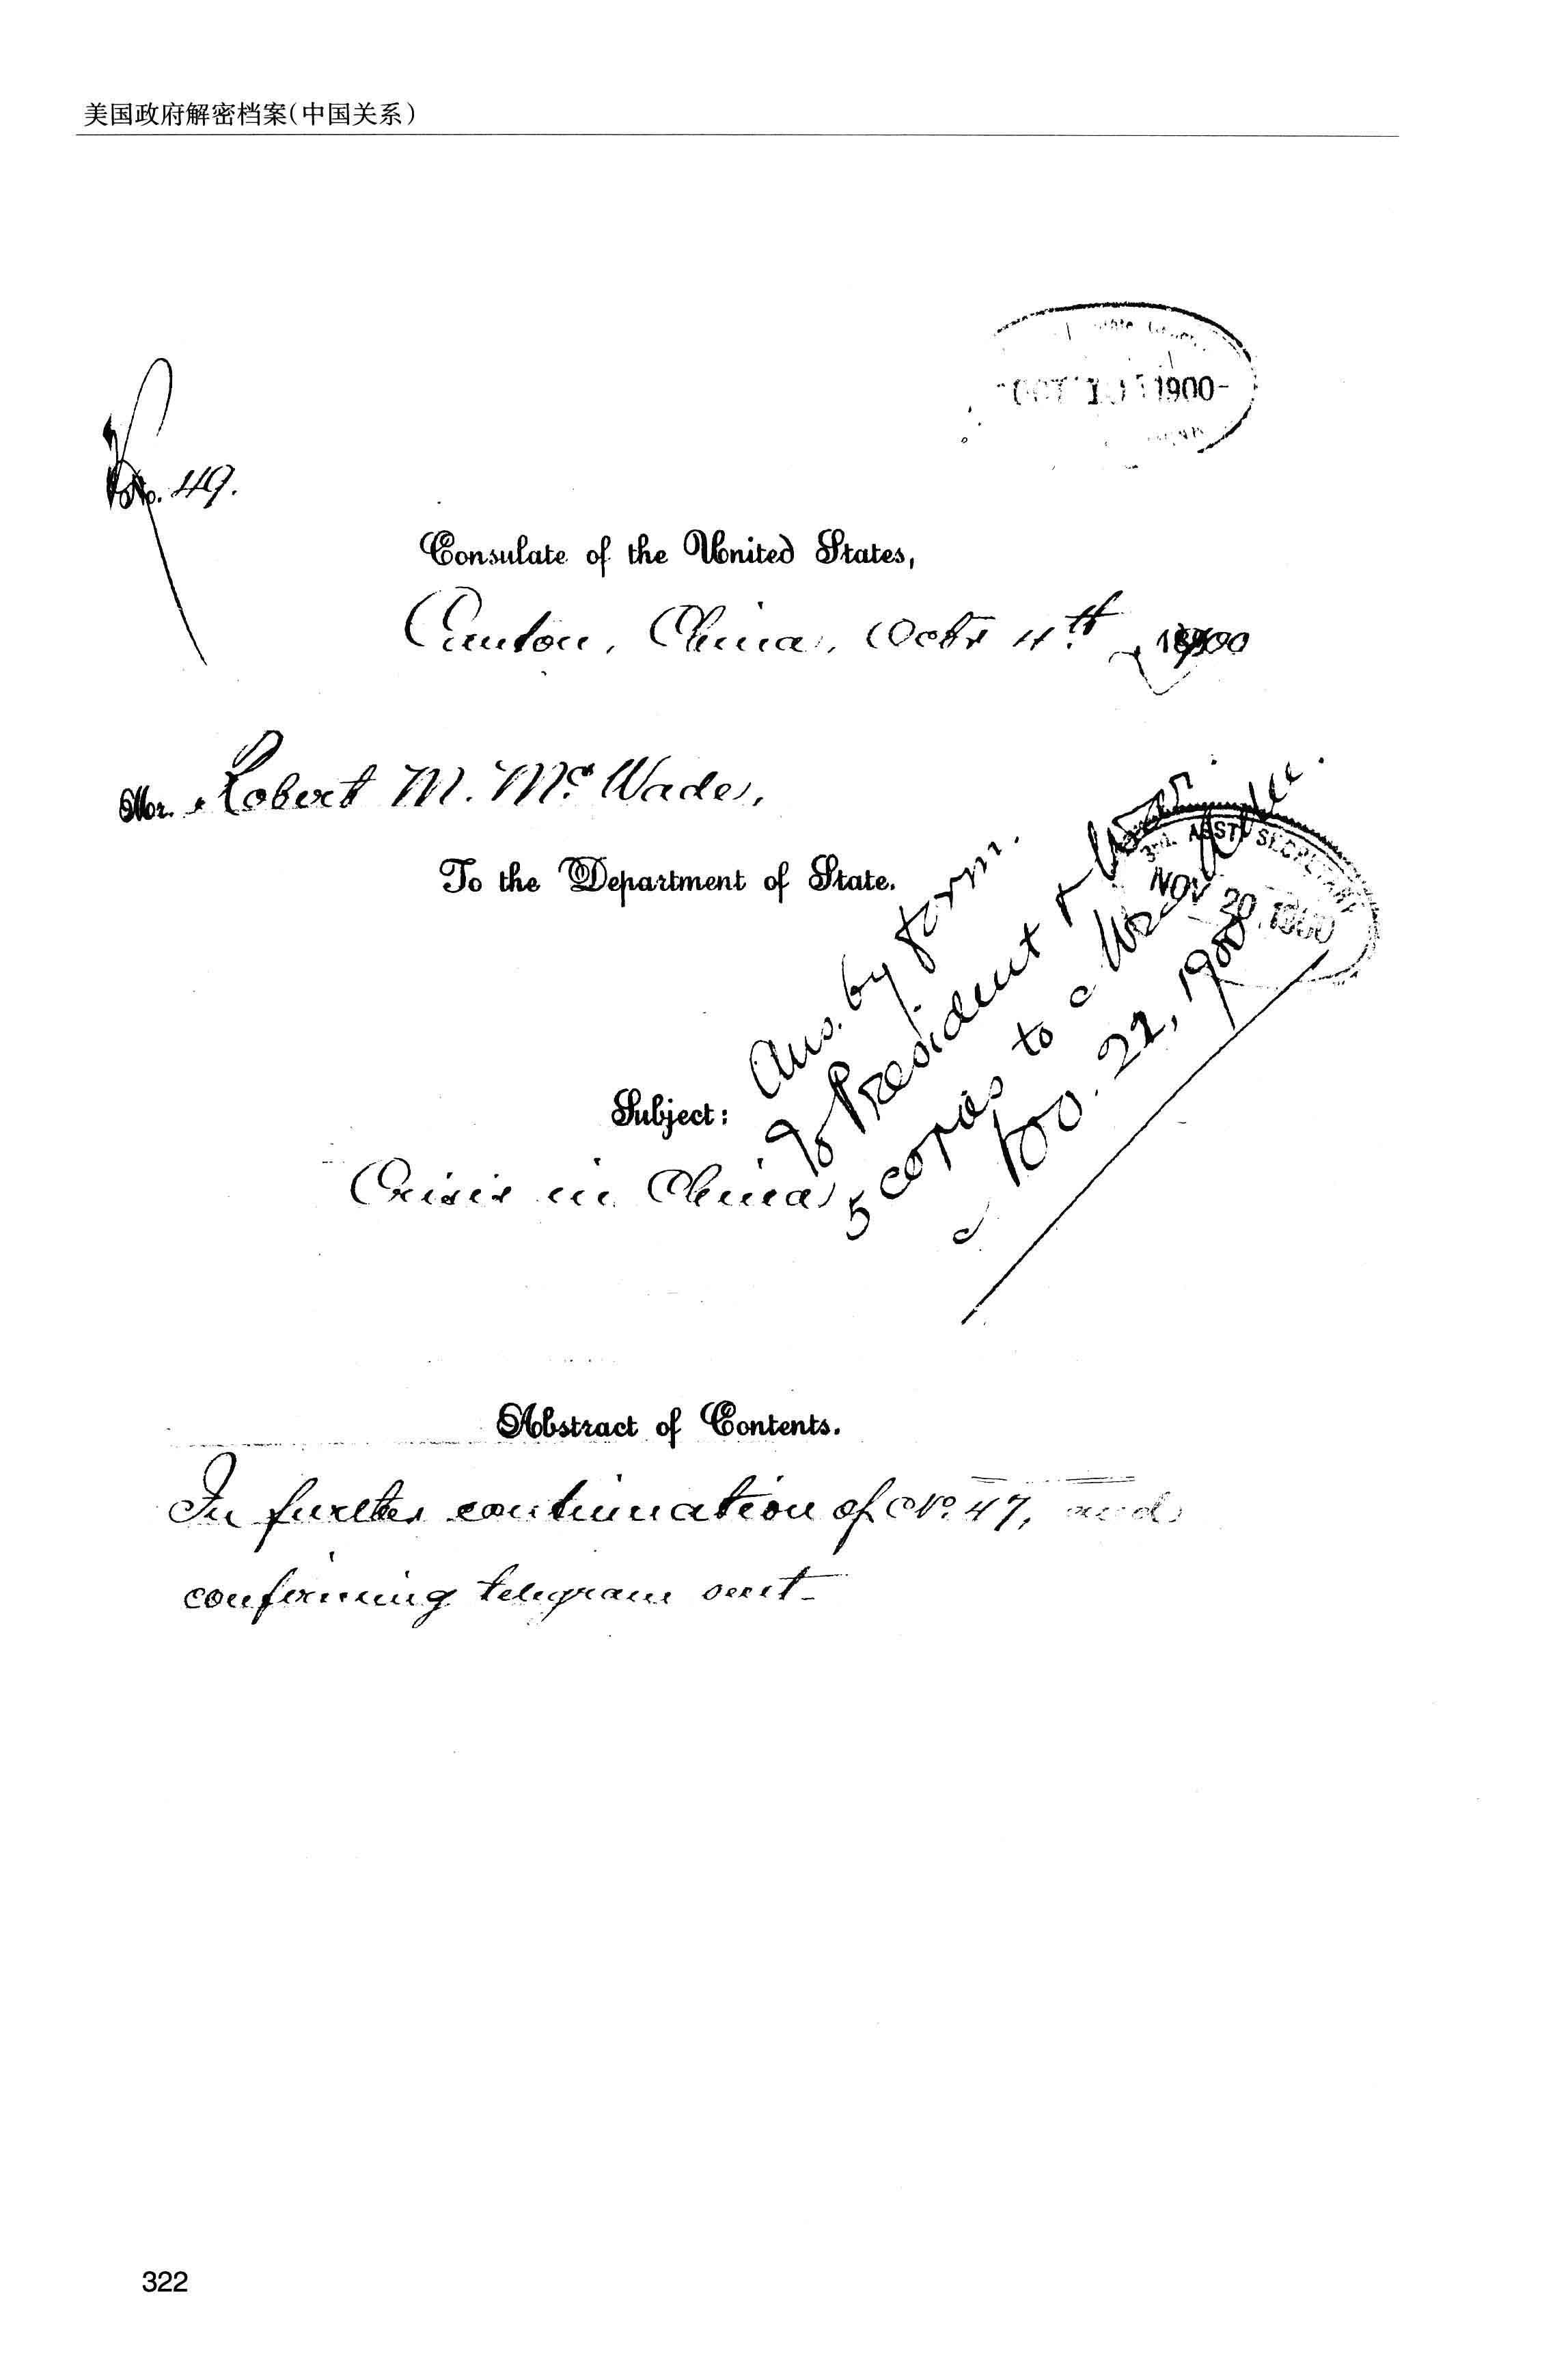 美国政府解密档案(中国关系)
1900-
No. 49.
Consulate of the United States,
Canton, China, Octr 4th, 1900
Mr. Robert M. McWade,
To the Department of State.
3rd. ASST. SECRETARY
NOV 20 1900
Ans. by form.
To President &
5 copies to
22, 1900
Subject:
Crisis in China
Abstract of Contents.
In further continuation of No. 47, and
confirming telegram sent_
322